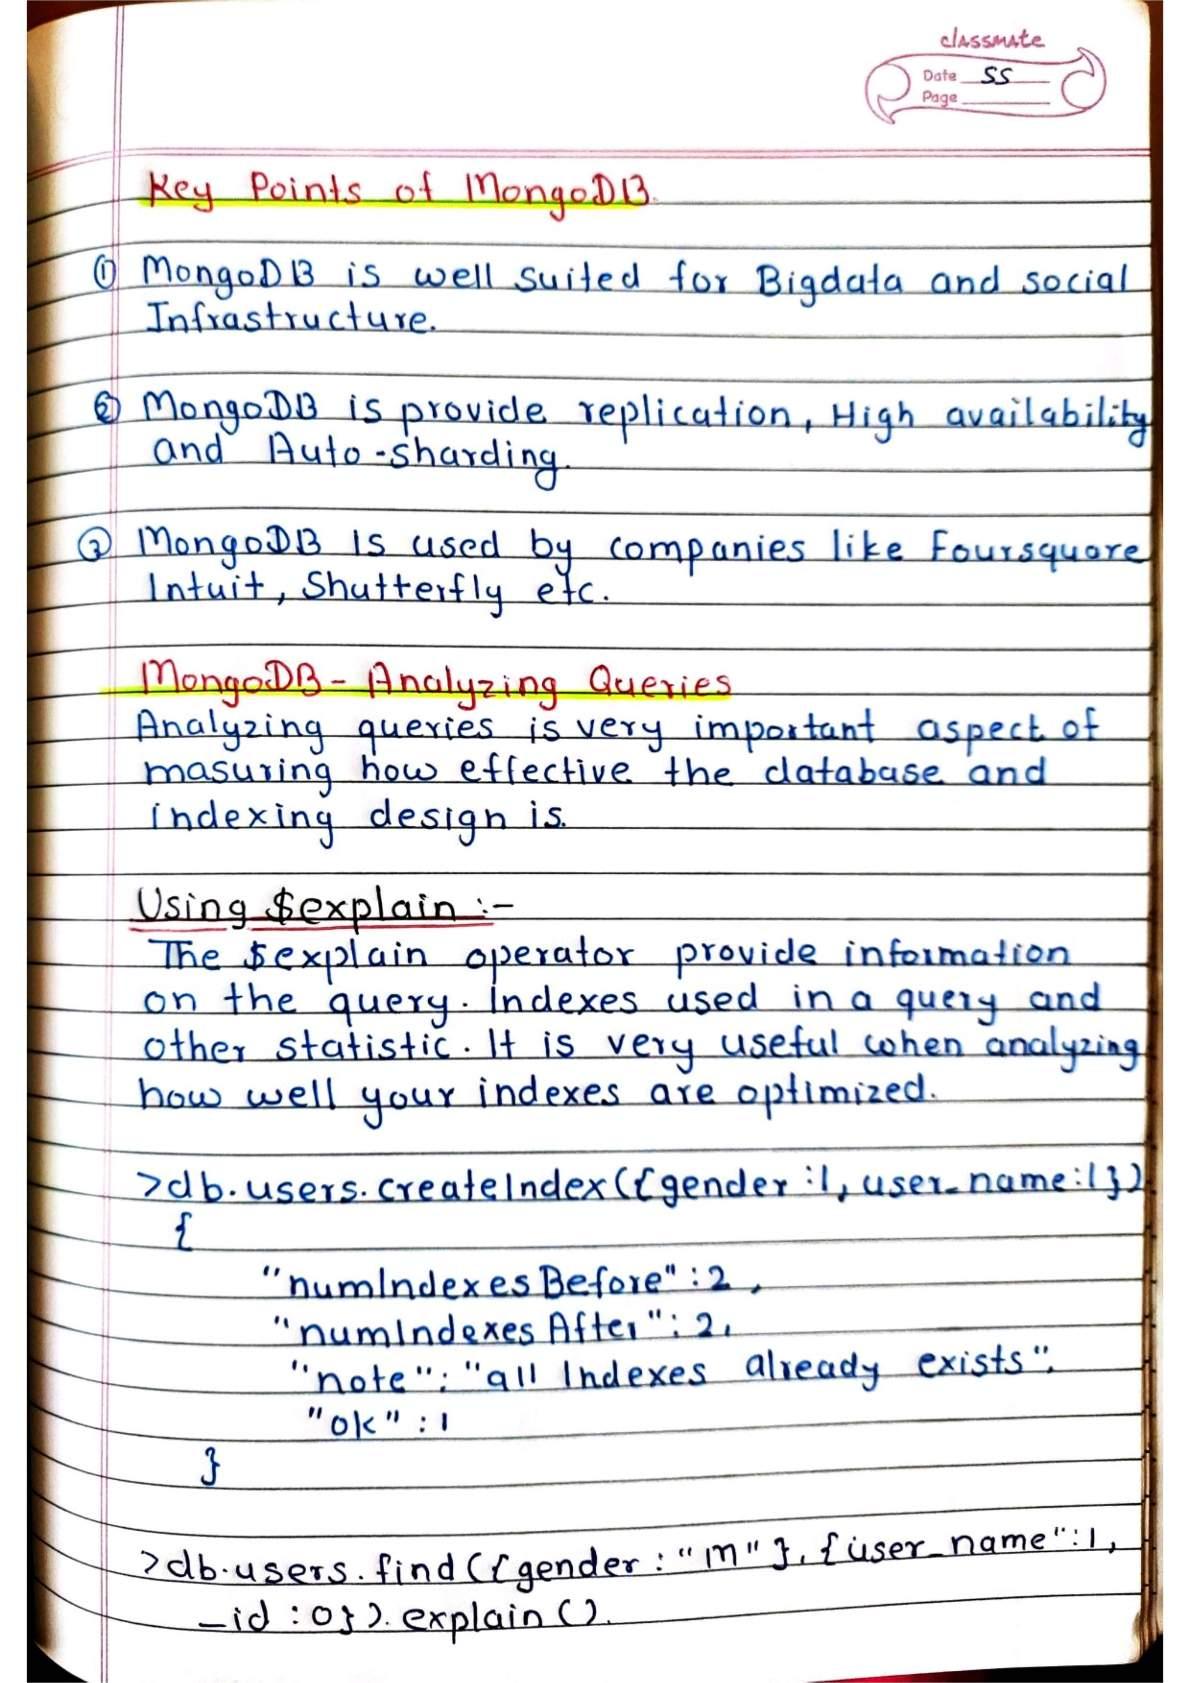 classmate
Date SS
Page
Key Points of MongoDB.
① MongoDB is well suited for Bigdata and social
Infrastructure.
② MongoDB is provide replication, High availability
and Auto-sharding.
③ MongoDB is used by companies like Foursquare
Intuit, Shutterfly etc.
MongoDB - Analyzing Queries
Analyzing queries is very important aspect of
masuring how effective the database and
indexing design is.
Using $explain :-
The $explain operator provide information
on the query. Indexes used in a query and
other statistic. It is very useful when analyzing
how well your indexes are optimized.
>db.users.createIndex({gender:1, user_name:1})
{
"numIndexesBefore" : 2,
"numIndexesAfter" : 2,
"note" : "all Indexes already exists",
"ok" : 1
}
>db.users.find({gender : "M"}, {user_name":1,
_id : 0}). explain().